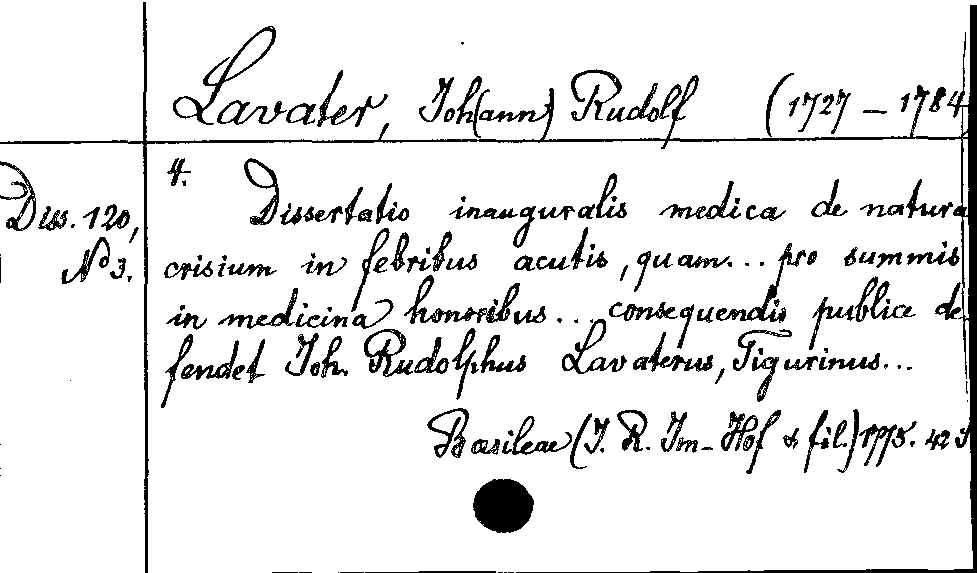 Lavater, Joh(ann) Rudolf (1727 – 1784
4.
Diss. 120,
No 3.
Dissertatio inauguralis medica de natura
crisium in febribus acutis, quam... pro summis
in medicina honoribus... consequendis publice de
fendet Joh. Rudolphus Lavaterus, Tigurinus...
Basileae (J. R. Im-Hof & fil.) 1775. 42 S